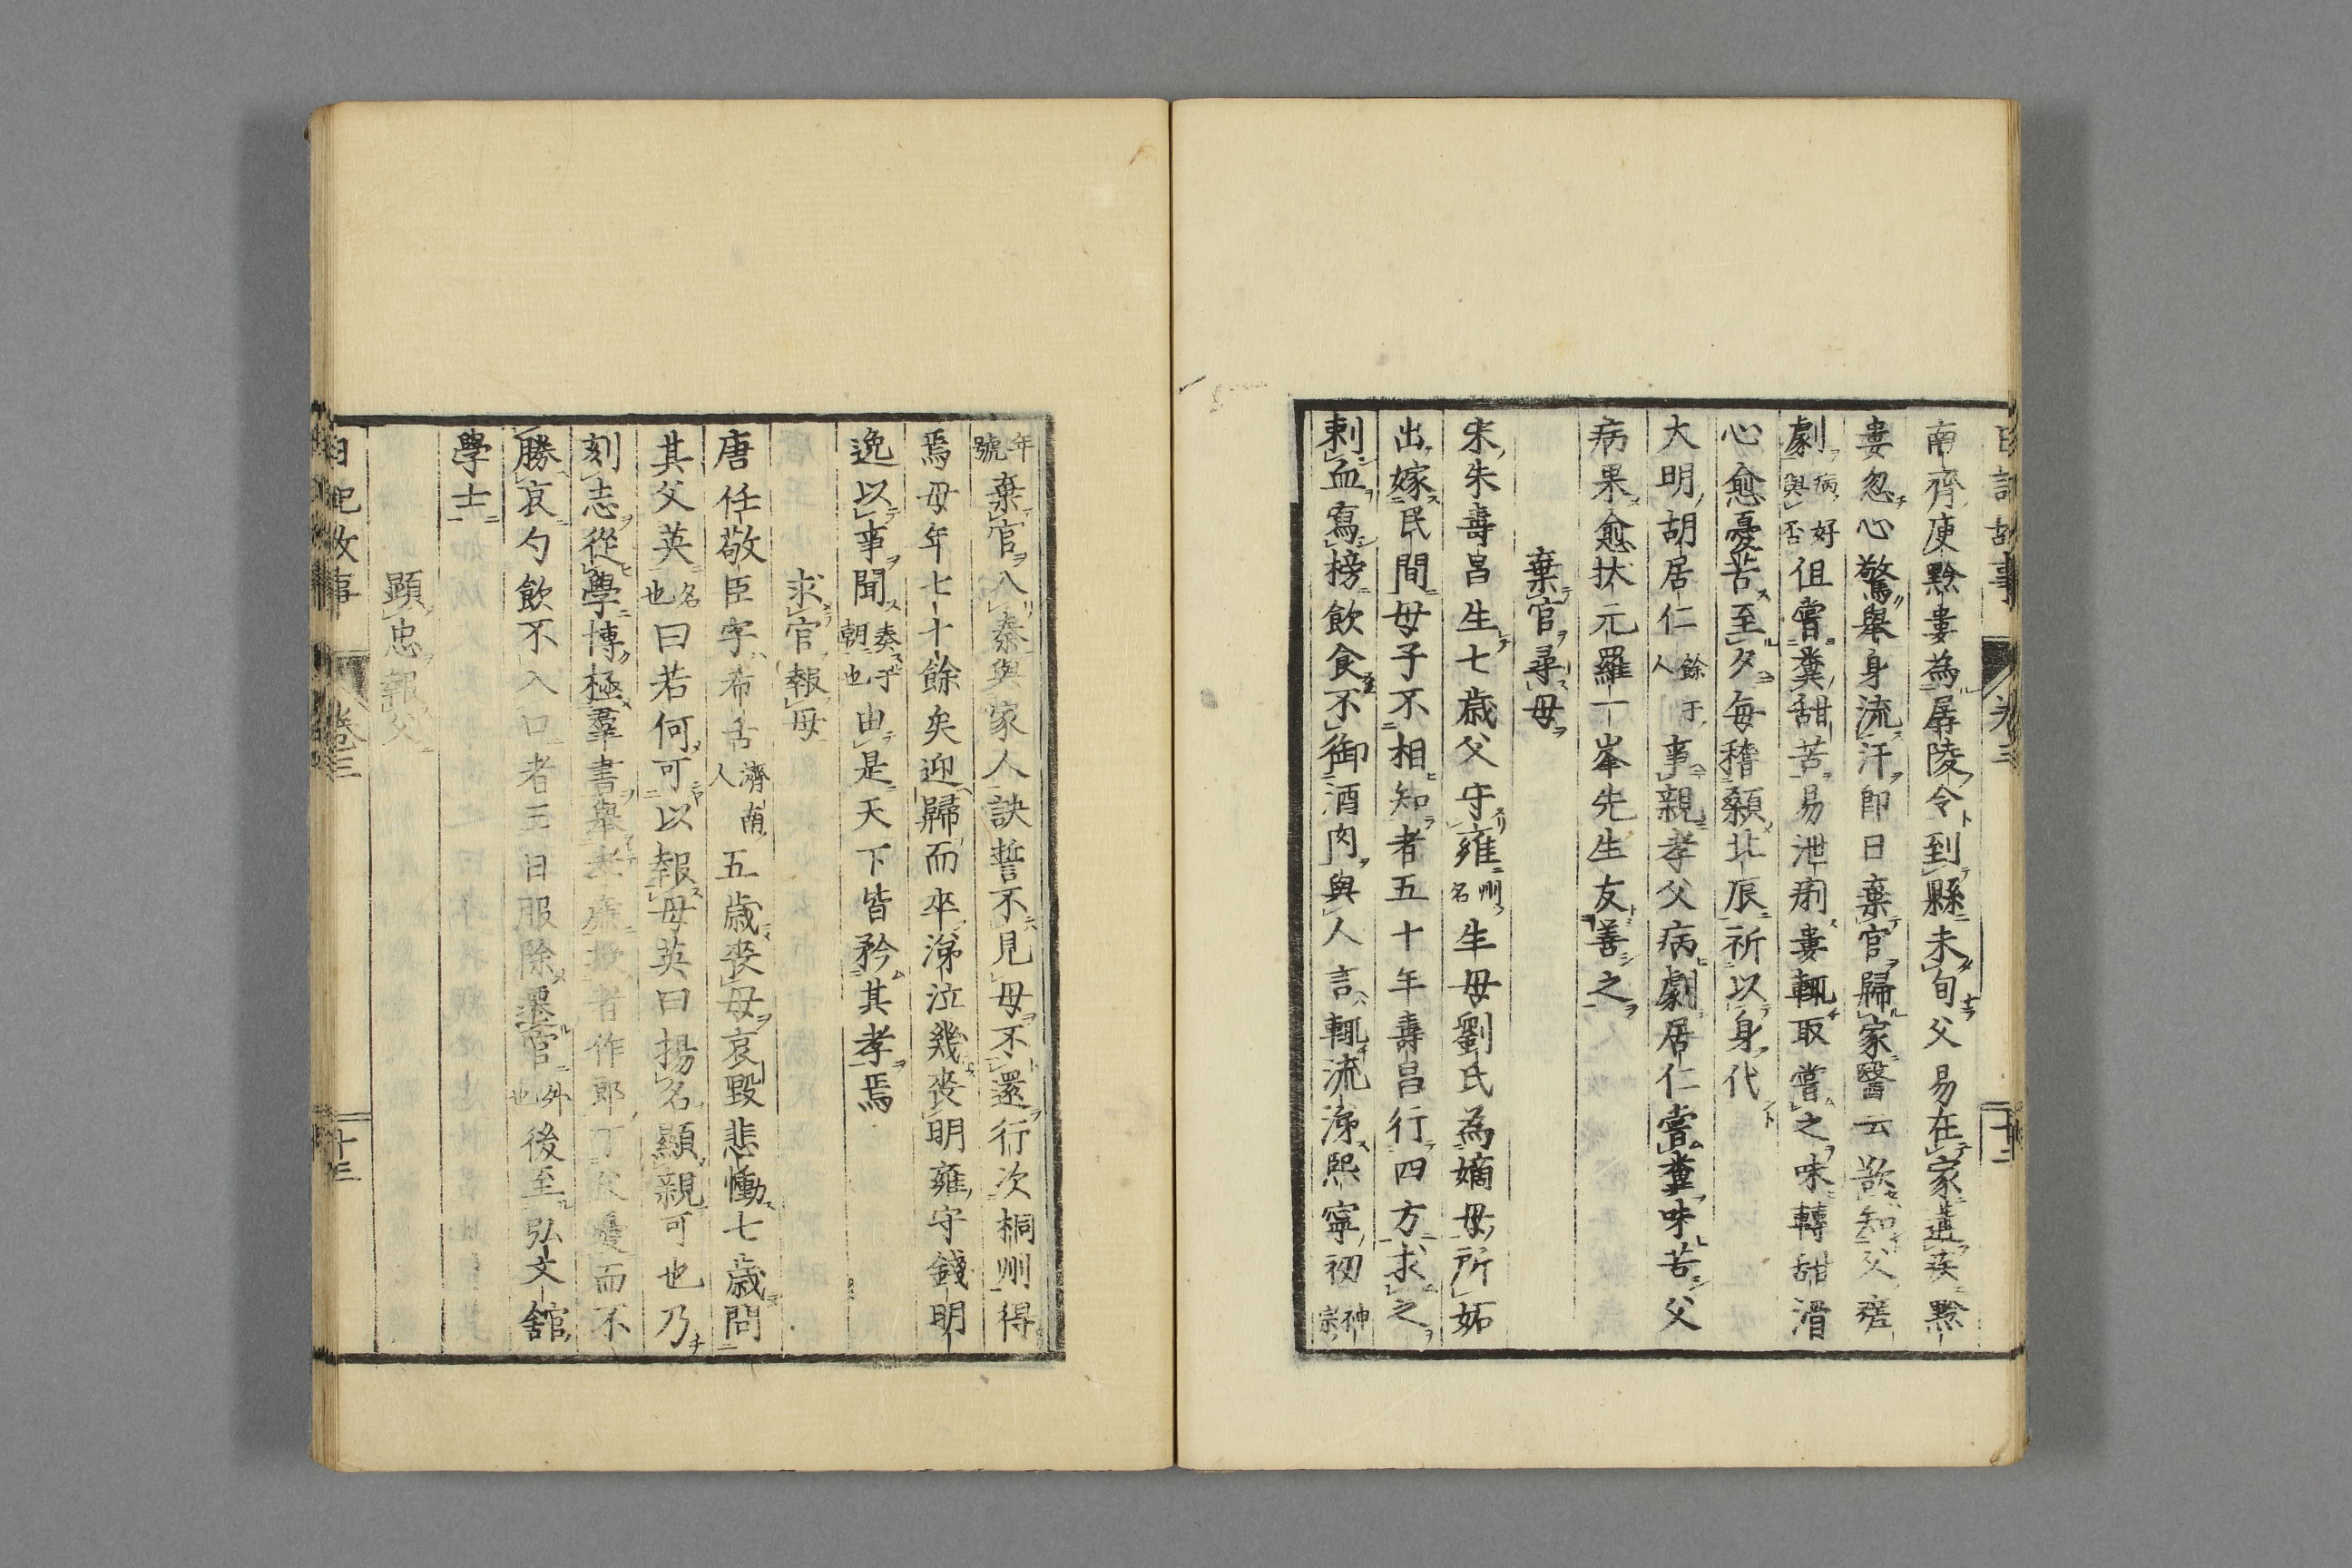 日記故事 卷三 十二
南齊庾黔婁為孱陵令到縣未旬父易在家遘疾黔
婁忽心驚舉身流汗即日棄官歸家醫云欲知父瘥
劇病與好否但嘗糞甜苦易泄痢婁輒取嘗之味轉甜滑
心愈憂苦至夕每稽顙北辰祈以身代
大明胡居仁餘于人事親孝父病劇居仁嘗糞味苦父
病果愈扶元羅一峯先生友善之
棄官尋母
宋朱壽昌生七歲父守雍州名生母劉氏為嫡母所妬
出嫁民間母子不相知者五十年壽昌行四方求之
刺血寫榜飲食不御酒肉與人言輒流涕熙寧初神宗
年號棄官入秦與家人訣誓不見母不還行次桐州得
焉母年七十餘矣迎歸而卒涕泣幾喪明雍守錢明
逸以事聞奏于朝也由是天下皆矜其孝焉
求官報母
唐任敬臣字希古濟南人五歲喪母哀毀悲慟七歲問
其父英名也曰若何可以報母英曰揚名顯親可也乃
刻志從學博極羣書舉孝廉授著作郎丁父憂而不
勝哀勺飲不入口者五日服除遷官外也後至弘文舘
學士
顯忠報父
日記故事 卷三 十三